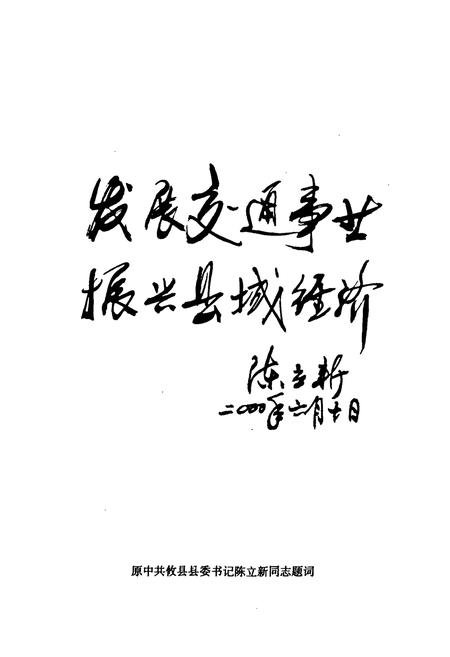 发展交通事业
振兴县域经济
陈立新
二000年六月十日
原中共攸县县委书记陈立新同志题词